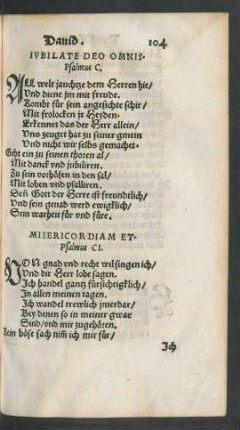 Dauid.
104
IVBILATE DEO OMNIS.
Psalmus C.
ALL welt jauchtze dem Herren hie/
Vnd diene jm mit freude.
Kombt für sein angesichte schir/
Mit frolocken jr Heyden.
Erkennet das der Herr allein/
Vns zeuget hat zu seiner gmein
Vnd nicht wir selbs gemachet.
Geht ein zu seinen thoren al/
Mit danck vnd jubiliren.
Zu sein vorhöfen in den sal/
Mit loben vnd psalliren.
Deñ Gott der Herre ist freundtlich/
Vnd sein genad werd ewigklich/
Sein warheit für vnd füre.
MISERICORDIAM ET.
Psalmus CI.
VON gnad vnd recht wil singen ich/
Vnd dir Herr lobe sagen.
Ich handel gantz fürsichtigklich/
In allen meinen tagen.
Ich wandel trewlich jmerdar/
Bey denen so in meiner gwar
Sind/vnd mir zugehören.
Kein böse sach nim̃ ich mir für/
Ich